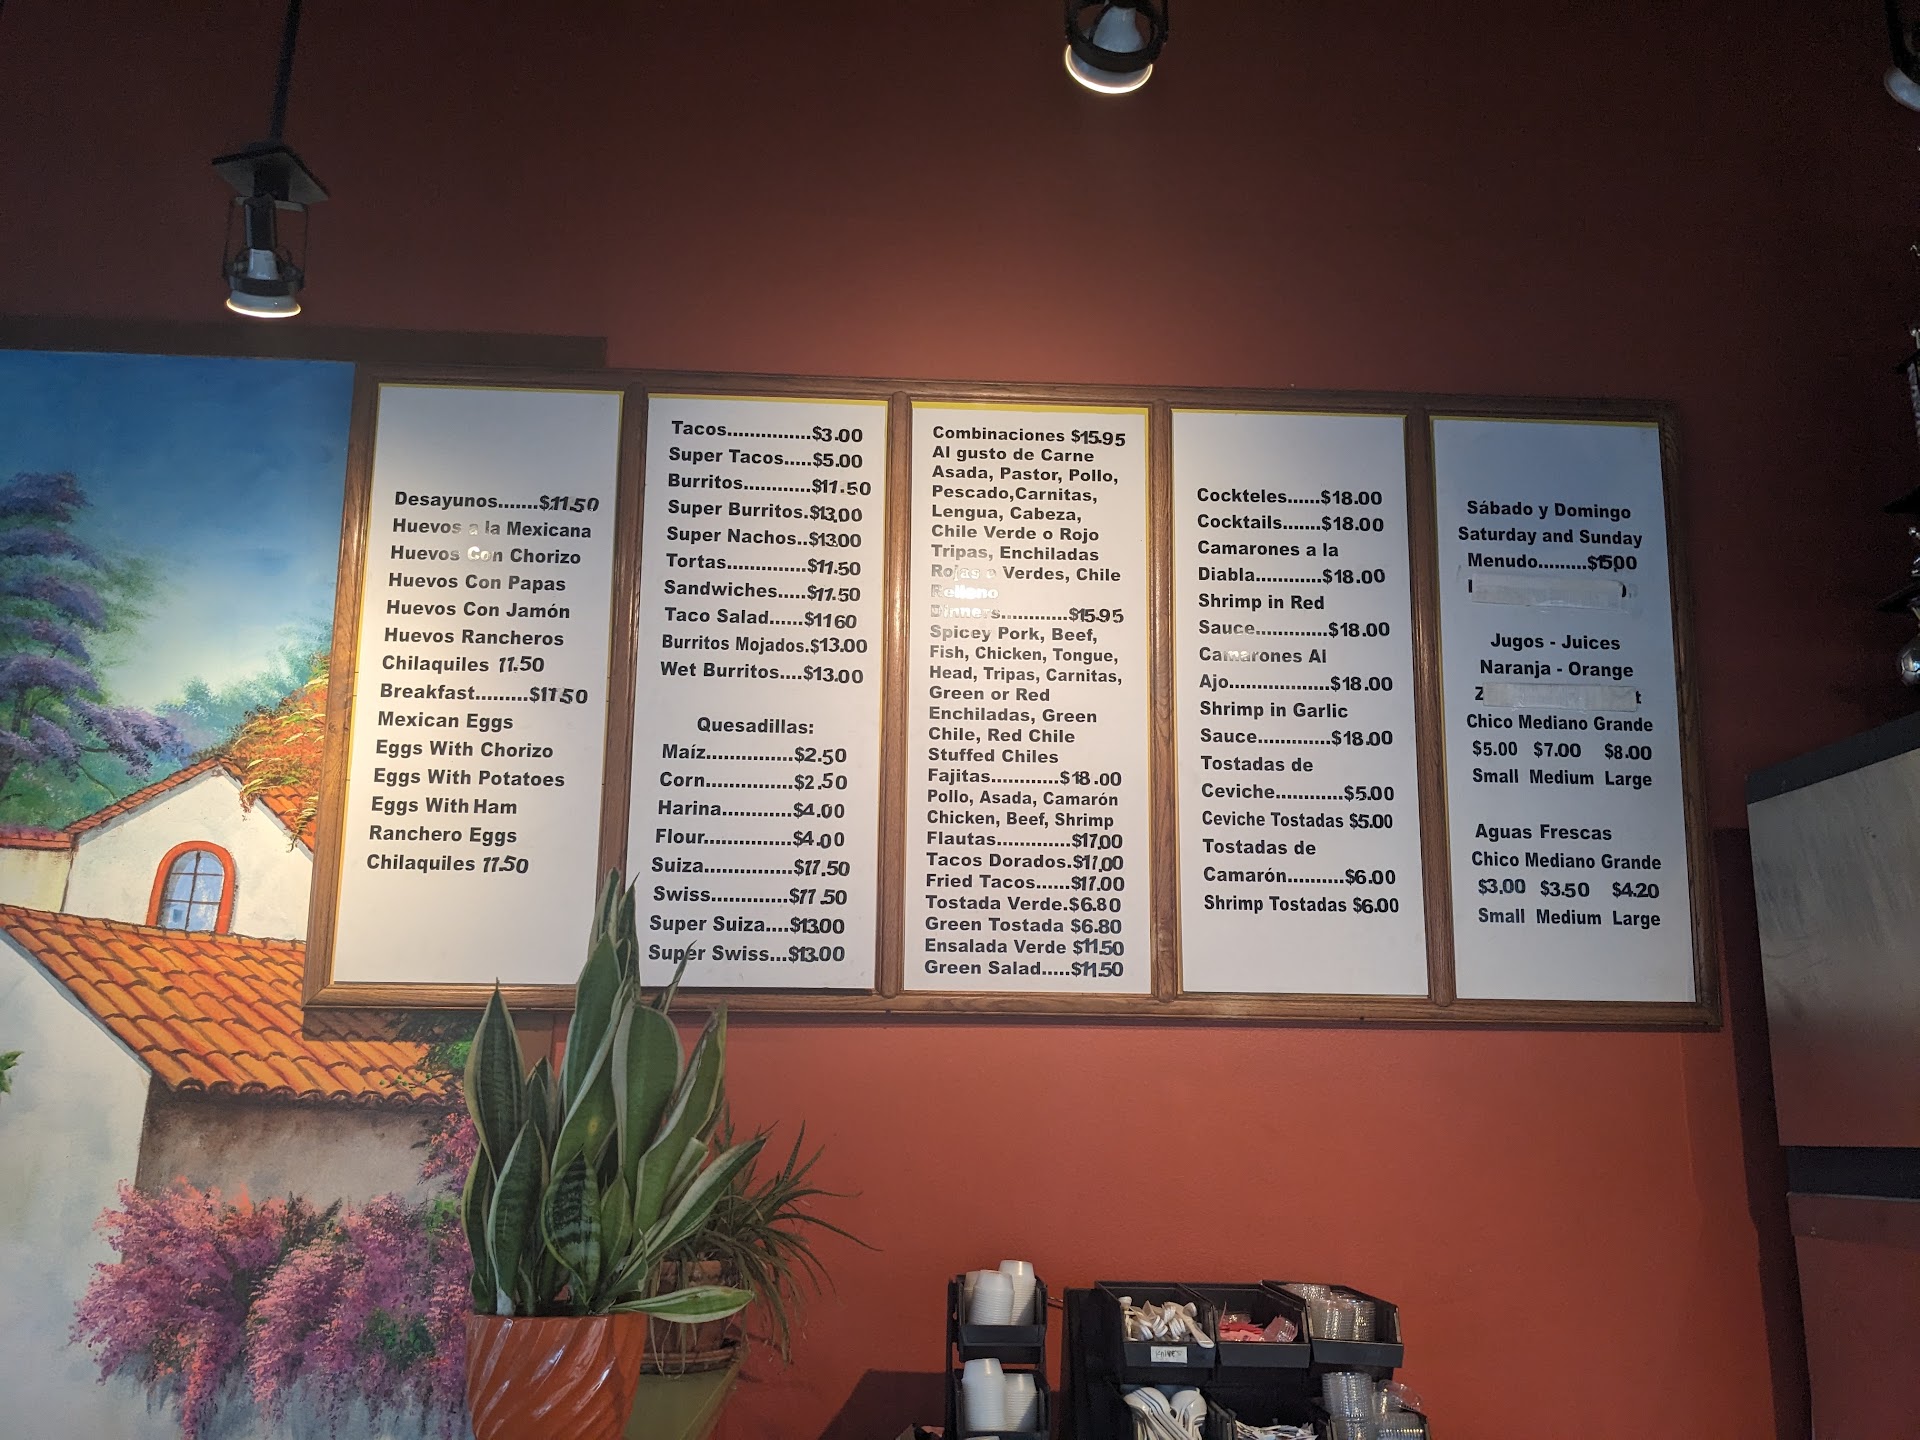 Desayunos.......$11.50
Huevos a la Mexicana
Huevos Con Chorizo
Huevos Con Papas
Huevos Con Jamón
Huevos Rancheros
Chilaquiles 11.50
Breakfast.........$11.50
Mexican Eggs
Eggs With Chorizo
Eggs With Potatoes
Eggs With Ham
Ranchero Eggs
Chilaquiles 11.50
Tacos...............$3.00
Super Tacos.....$5.00
Burritos............$11.50
Super Burritos.$13.00
Super Nachos..$13.00
Tortas...............$11.50
Sandwiches.....$11.50
Taco Salad......$11 60
Burritos Mojados.$13.00
Wet Burritos....$13.00
Quesadillas:
Maíz................$2.50
Corn................$2.50
Harina.............$4.00
Flour...............$4.00
Suiza................$11.50
Swiss..............$11.50
Super Suiza....$13.00
Super Swiss...$13.00
Combinaciones $15.95
Al gusto de Carne
Asada, Pastor, Pollo,
Pescado,Carnitas,
Lengua, Cabeza,
Chile Verde o Rojo
Tripas, Enchiladas
Rojas o Verdes, Chile
Relleno
Dinners............$15.95
Spicey Pork, Beef,
Fish, Chicken, Tongue,
Head, Tripas, Carnitas,
Green or Red
Enchiladas, Green
Chile, Red Chile
Stuffed Chiles
Fajitas............$18.00
Pollo, Asada, Camarón
Chicken, Beef, Shrimp
Flautas.............$17.00
Tacos Dorados.$17.00
Fried Tacos......$17.00
Tostada Verde.$6.80
Green Tostada $6.80
Ensalada Verde $11.50
Green Salad.....$11.50
Cockteles......$18.00
Cocktails.......$18.00
Camarones a la
Diabla............$18.00
Shrimp in Red
Sauce.............$18.00
Camarones Al
Ajo..................$18.00
Shrimp in Garlic
Sauce.............$18.00
Tostadas de
Ceviche............$5.00
Ceviche Tostadas $5.00
Tostadas de
Camarón..........$6.00
Shrimp Tostadas $6.00
Sábado y Domingo
Saturday and Sunday
Menudo.........$15.00
Jugos - Juices
Naranja - Orange
Chico Mediano Grande
$5.00 $7.00 $8.00
Small Medium Large
Aguas Frescas
Chico Mediano Grande
$3.00 $3.50 $4.20
Small Medium Large